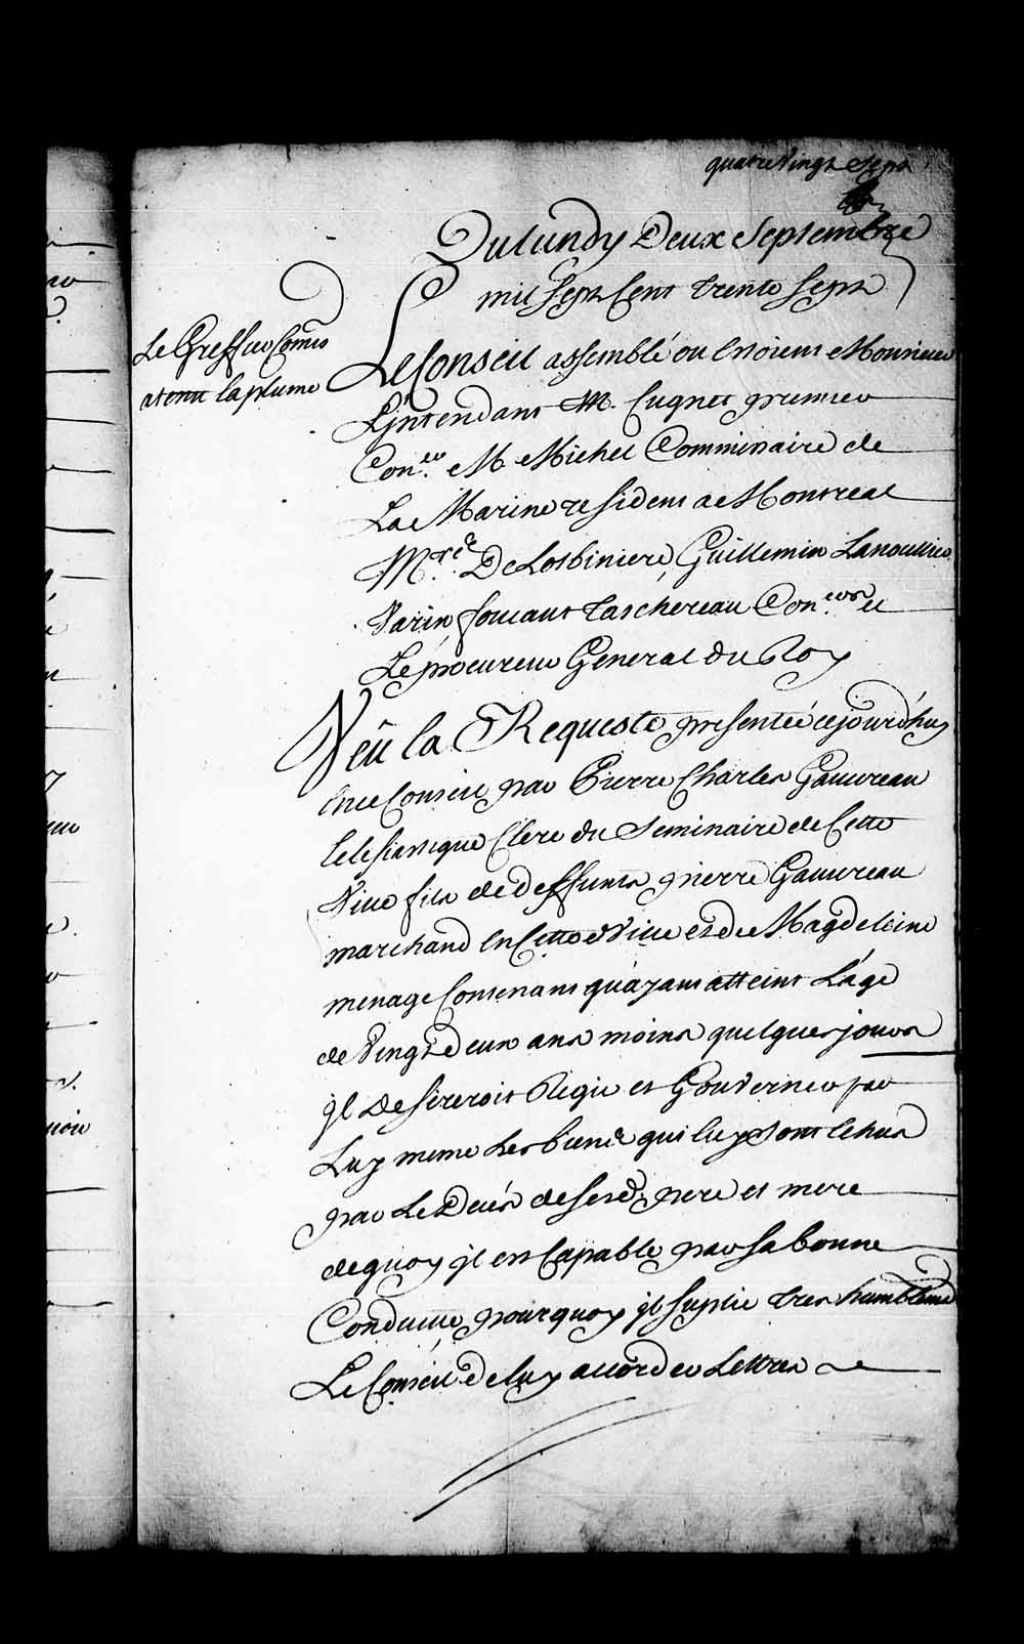 quatre Vingt Sept
Du Lundy Deux Septembre
mil Sept Cent trente Sept
Le Greffier Comis
a tenu la plume
Le Conseil assemblé ou Etoient Monsieur
L'jntendant M. Cugnet premier
Con.er M. Michel Commissaire de
La Marine residens a Montreal
M.rs De Lotbiniere, Guillemin Lanoullier
Varin foucaut Taschereau Con.ers et
Le procureur General du Roy
Veû la Requeste presentée cejourd'huy
En ce Conseil par Pierre Charles Gauvreau
Eclesiastique Clerc du Seminaire de Cette
Ville fils de deffunts pierre Gauvreau
marchand En Cette Ville et de Magdeleine
menage Contenant qu'ayant atteint L'age
de Vingt deux ans moins quelques jours
jl Desireroit Regir et Gouverner par
Luy meme Les biens qui luy sont Echus
par Le Décés de ses d. pere et mere
de quoy jl est Capable par sa bonne
Conduitte, pourquoy jl suplie tres humblemt
Le Conseil de luy accorder Lettres